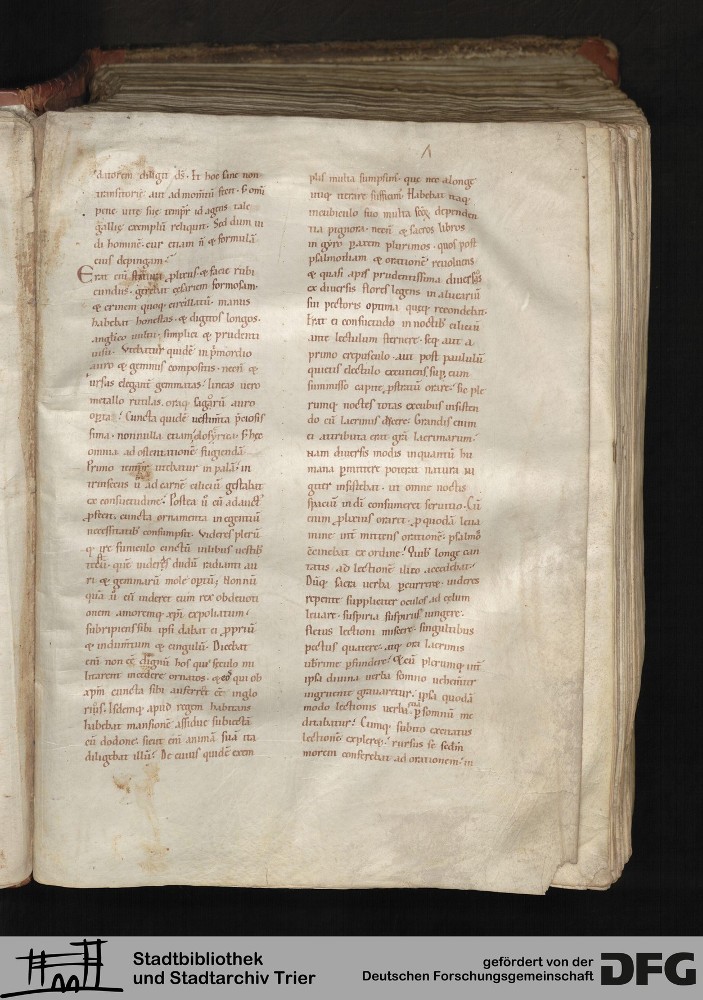 datorem diligit ds. Et hoc sine non
transitorie aut ad momtū fecit. s omi
pene vite sue tempr id agens. tale
gallie exemplū reliquit. Sed dum ui
di hominē. cur etiam n̄ & formulā
eius depingam?
Erat enī statura plixus. & facie rubi
cundus. gerebat cesariem formosam.
& crinem quoq. circillatū. manus
habebat honestas. & digitos longos.
anglico uultu. simplici & prudenti
uisu. Vtebatur quidē in pmordio
auro & gemmis compositis. necn̄ &
ursas elegant gemmatas. lineas uero
metallo rutilas. oraq. sagarū auro
opta. Cuncta quidē uestimta pciosis
sima. nonnulla etiam olosyrica. S; hec
omnia ad ostentationē fugiendā
Primo tempr utebatur in palā. in
trinsecus ū ad carnē ciliciū gestabat
ex consuetudine. Postea ū cū ad auct
pfecit. cuncta ornamenta in egentiū
necessitatib consumpsit. Videres plerū
q. ire funiculo cinctū uilibus uestib
tectū. quē uideres dudū radianti au
ri & gemmarū mole optū; Nonnū
quā ū cū uideret eum rex ob deuoti
onem amoremq. xpi expoliatum.
subripiens sibi ipsi dabat ei ppriū
& indumtum & cingulū. Dicebat
enī non eē dignū hos qui seculo mi
litarent incedere ornatos. & eos qui ob
xpm cuncta sibi auferret eē inglo
rios. Isdemq. apud regem habitans
habebat mansionē assidue subiectā
cū dodone. sicut enī animā suā ita
diligebat illū. De cuius quidē exem
plis multa sumpsim. que nec a longe
utiq. iterare sufficim. Habebat itaq.
in cubiculo suo multa scoꝝ dependen
tia pignora. necn̄ & sacros libros
in gyro p axem plurimos. quos post
psalmodiam & orationē reuoluens
& quasi apis prudentissima diuersos
ex diuersis flores legens in aluearia
sui pectoris optima queq. recondebat.
Erat ei consuetudo in noctib ciliciū
ante lectulum sternere. seq. aut a
primo crepusculo. aut post paululū
quietis electulo excutiens sup eum
summisso capite pstratū orare. sic ple
rumq. noctes totas excubiis insisten
do cū lacrimis dcere. Grandis enim
ei attributa erat gra lacrimarum.
nam diuersis modis inquantū hu
mana pmittere poterat natura ui
giliis insistebat. ut omne noctis
spaciū in dī consumeret seruitio. Cū
enim plixius oraret. p quodā leua
mine int mittens orationē. psalmos
ceinebat ex ordine. Quib longe can
tatis. ad lectionē ilico accedebat.
Dūq. sacra uerba pcurrere. uideres
repente suppliciter oculos ad celum
leuare. suspiria suspiriis iungere.
fletus lectioni miscere. singultibus
pectus quatere. atq. ora lacrimis
ubrime pfundere. & cū plerumq. int
ipsa diuina uerba somno uehemter
ingruente grauaretur. ipsa quodā
modo lectionis uerba etiā p somnū me
ditabatur. Cumq. subito excitatus
lectionē expleret. rursus se sedm
morem conferebat ad orationem. in
Stadtbibliothek
und Stadtarchiv Trier
gefördert von der
Deutschen Forschungsgemeinschaft
DFG